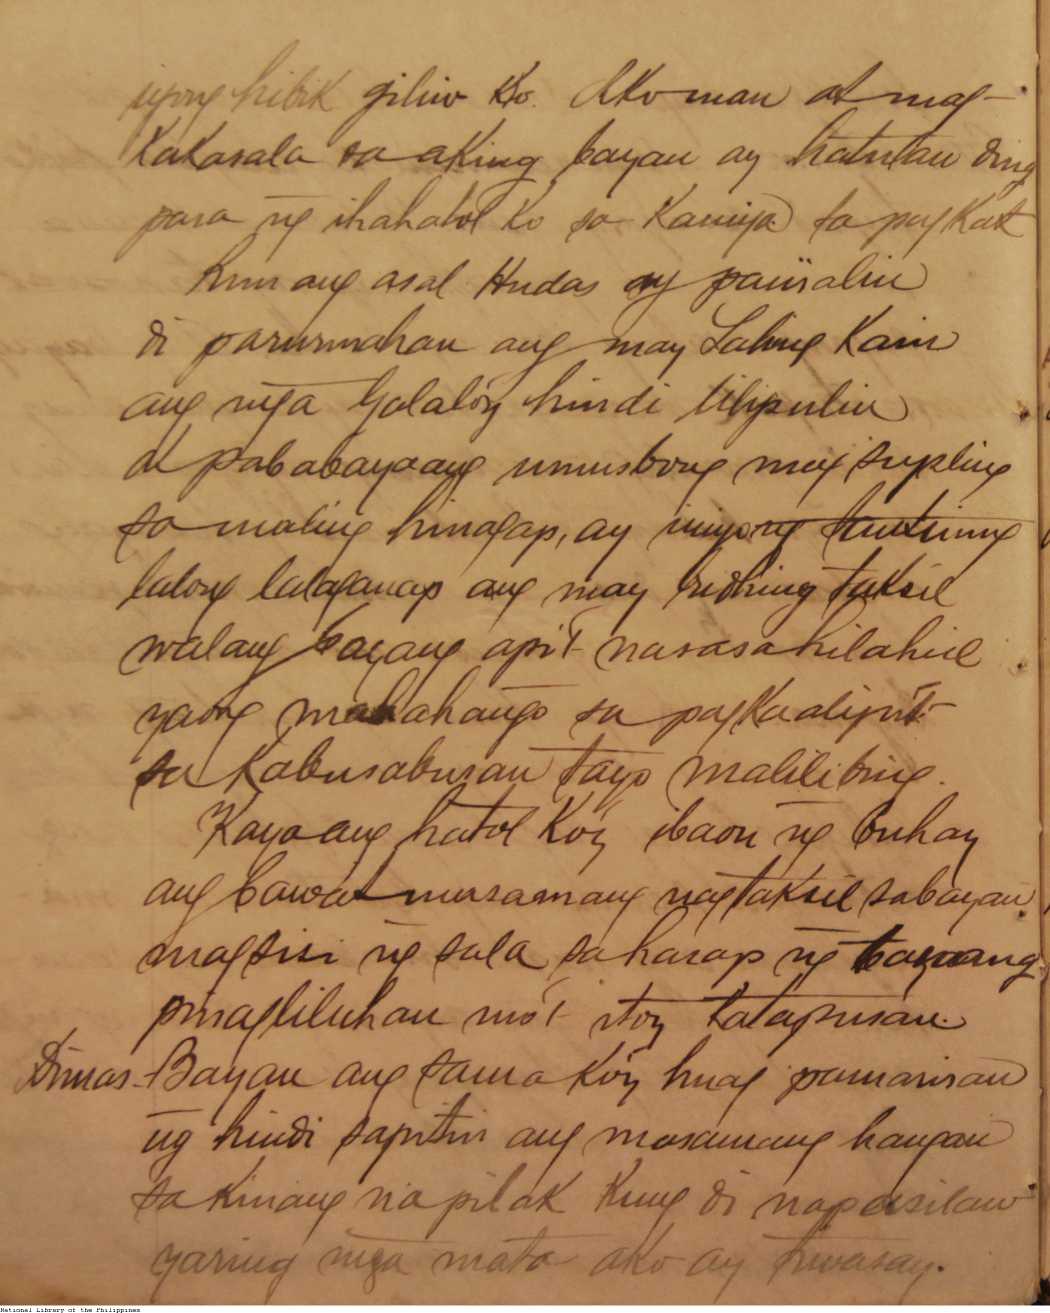 iyong hibik giliw ko. Ako man at mag-
kakasala sa aking bayan ay hatulan ding
para ng ihahatol ko sa kaniya sa pagkat
kun ang asal Hudas ay paiiralin
di parurusahan ang may Lahing Kain
ang mga balaloy hindi lilipulin
at pababayaang umusbong may supling
sa maling hinagap, ay iniyong
lalong lalaganap ang may budhing taksil
walang bayang apit nasasahilahil
yaong mahahango sa pagkaalipi't-
sa kabusabusan tayo malilibing.
Kaya ang hatol koy ibaon ng buhay
ang bawat masamang nagtaksil sa bayan
magsisi ng sala sa harap ng bayang
pinagliluhan mo't itoy katapusan.
Dimas - Bayan ang sama koy huag pamarisan
ng hindi sapitin ang masamang hangan
sa kinang na pilak kung di napasilaw
yaring mga mata ako ay tiwasay.
National Library of the Philippines